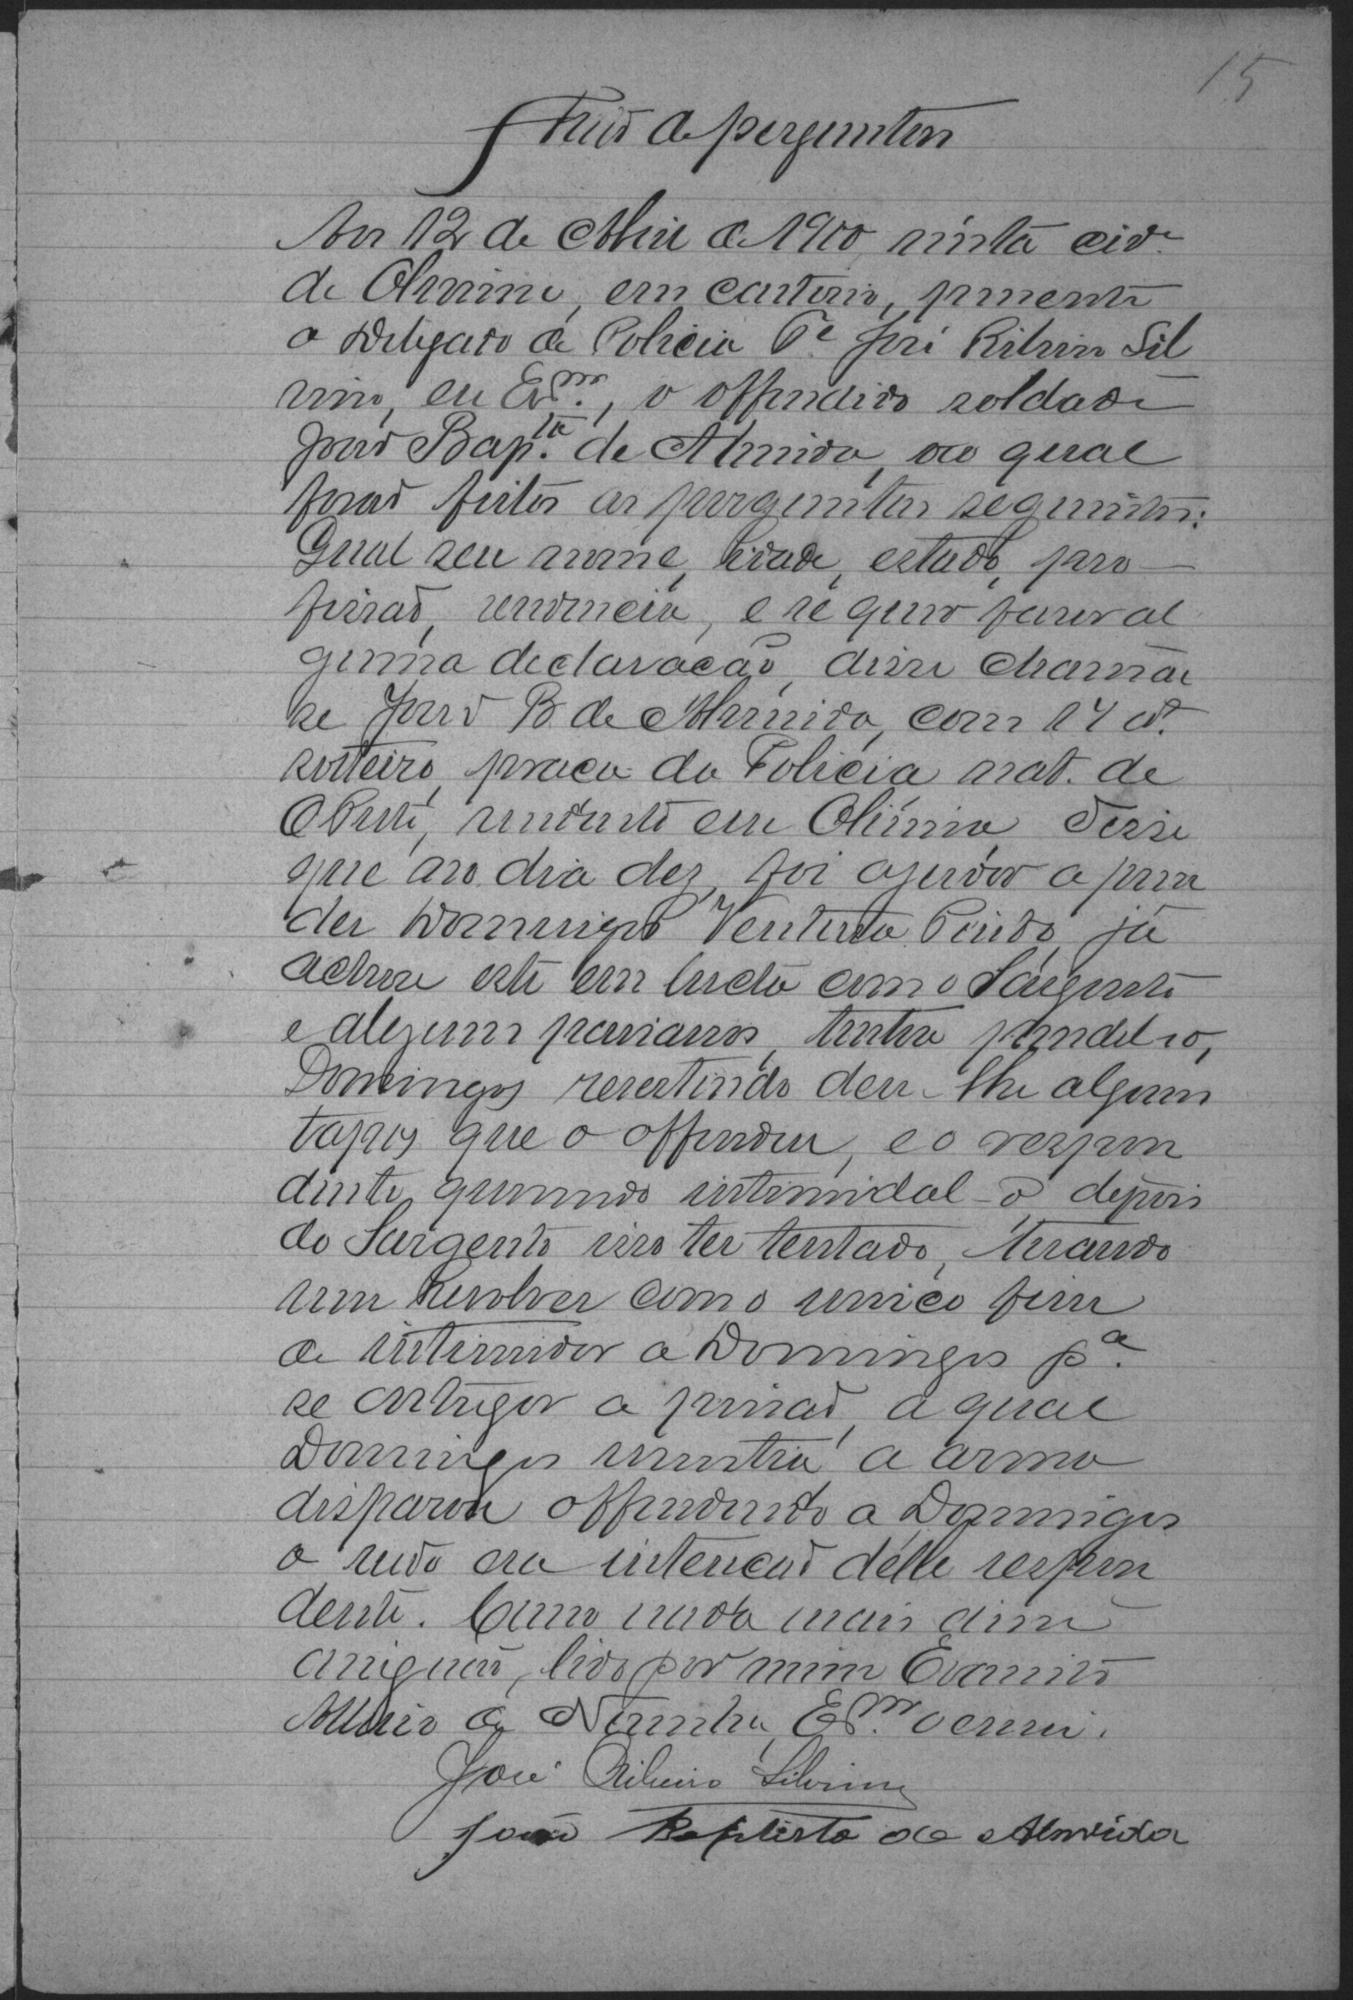 15
Auto de perguntas
Aos 12 de Abril de 1900, nesta cid.e
de Oliveira, em cartorio, presente
o Delegado de Policia T.e José Ribeiro Sil
vino, eu Es.m, o offendido soldado
João Bap.ta de Almeida, ao qual
forão feitas as perguntas seguintes:
Qual seu nome, idade, estado, pro
fissão, residencia, e se quer fazer al
guma declaração, disse chamar
se João B. de Almeida, com 24 a.
solteiro, praça da Policia, nat. de
residente em Oliveira. Disse
que no dia dez, foi ajudar a pren
der Domingos Ventura Pinto, já
achou este em lucta com o Sargento
e alguns paisanos, tentou prendel-o,
Domingos resestindo deu-lhe alguns
tapas que o offendeu, e o respon
dente querendo intimidal-o, depois
do Sargento isso ter tentado, tirando
um Revolver com o unico fim
de intimidar a Domingos p.a
se entregar a prisão, a qual
Domingos a arma
disparou offendendo a Domingos
o não era intenção delle respon
dente. Como nada mais disse
lido por mim Evaristo
de Noronha, Es.m o escrevi.
José Ribeiro Silvino
João Baptista de Almeida